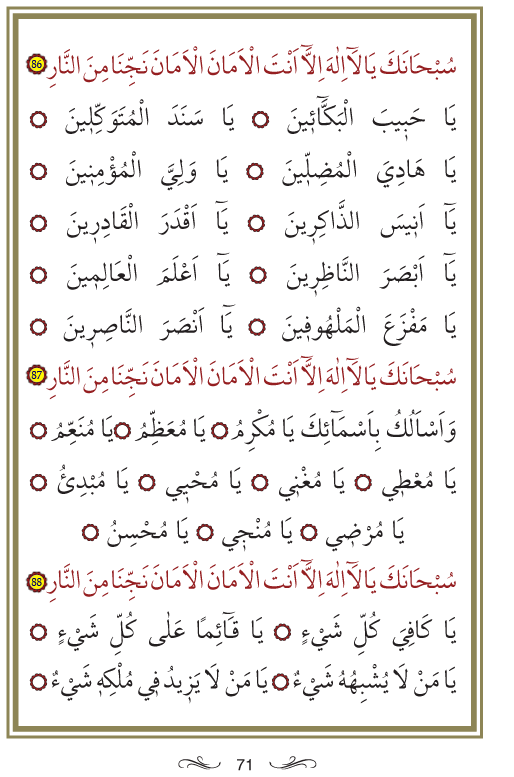 سُبْحَانَكَ يَا لَٓا اِلٰهَ اِلَّٓا اَنْتَ الْاَمَانَ الْاَمَانَ نَجِّنَا مِنَ النَّارِ 86
يَا حَبِيبَ الْبَكَّٓائِينَ يَا سَنَدَ الْمُتَوَكِّلِينَ
يَا هَادِيَ الْمُضِلِّينَ يَا وَلِيَّ الْمُؤْمِنِينَ
يَٓا اَنِيسَ الذَّاكِرِينَ يَٓا اَقْدَرَ الْقَادِرِينَ
يَٓا اَبْصَرَ النَّاظِرِينَ يَٓا اَعْلَمَ الْعَالِمِينَ
يَا مَفْزَعَ الْمَلْهُوفِينَ يَٓا اَنْصَرَ النَّاصِرِينَ
سُبْحَانَكَ يَا لَٓا اِلٰهَ اِلَّٓا اَنْتَ الْاَمَانَ الْاَمَانَ نَجِّنَا مِنَ النَّارِ 87
وَاَسْاَلُكَ بِاَسْمَٓائِكَ يَا مُكْرِمُ يَا مُعَظِّمُ يَا مُنَعِّمُ
يَا مُعْطِي يَا مُغْنِي يَا مُحْيِي يَا مُبْدِئُ
يَا مُرْضِي يَا مُنْجِي يَا مُحْسِنُ
سُبْحَانَكَ يَا لَٓا اِلٰهَ اِلَّٓا اَنْتَ الْاَمَانَ الْاَمَانَ نَجِّنَا مِنَ النَّارِ 88
يَا كَافِيَ كُلِّ شَيْءٍ يَا قَٓائِمًا عَلٰى كُلِّ شَيْءٍ
يَا مَنْ لَا يُشْبِهُهُ شَيْءٌ يَا مَنْ لَا يَزِيدُ فِي مُلْكِهِ شَيْءٌ
71